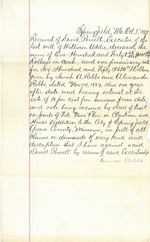 Springfield, Mo. Oct. 5"
Received of David Powell, Executor of the
last will of William Addis, deceased, the
sum of One Hundred and Forty
dollars in cash, and one promissory note
for One Hundred and Fifty Dollars
given by Sarah A. Robbs and Alexander
Robbs, dated Nov. 14, due one year
after date and bearing interest at the
rate of 10 per cent per annum from date,
and note being secured by deed of trust
on part of Lots Nine & Ten in
Addition to the City of Springfield
Greene County, Missouri, in full of all
claims or demands of every kind and
description that I have against said
David Powell by reason of said Executorship
Addis